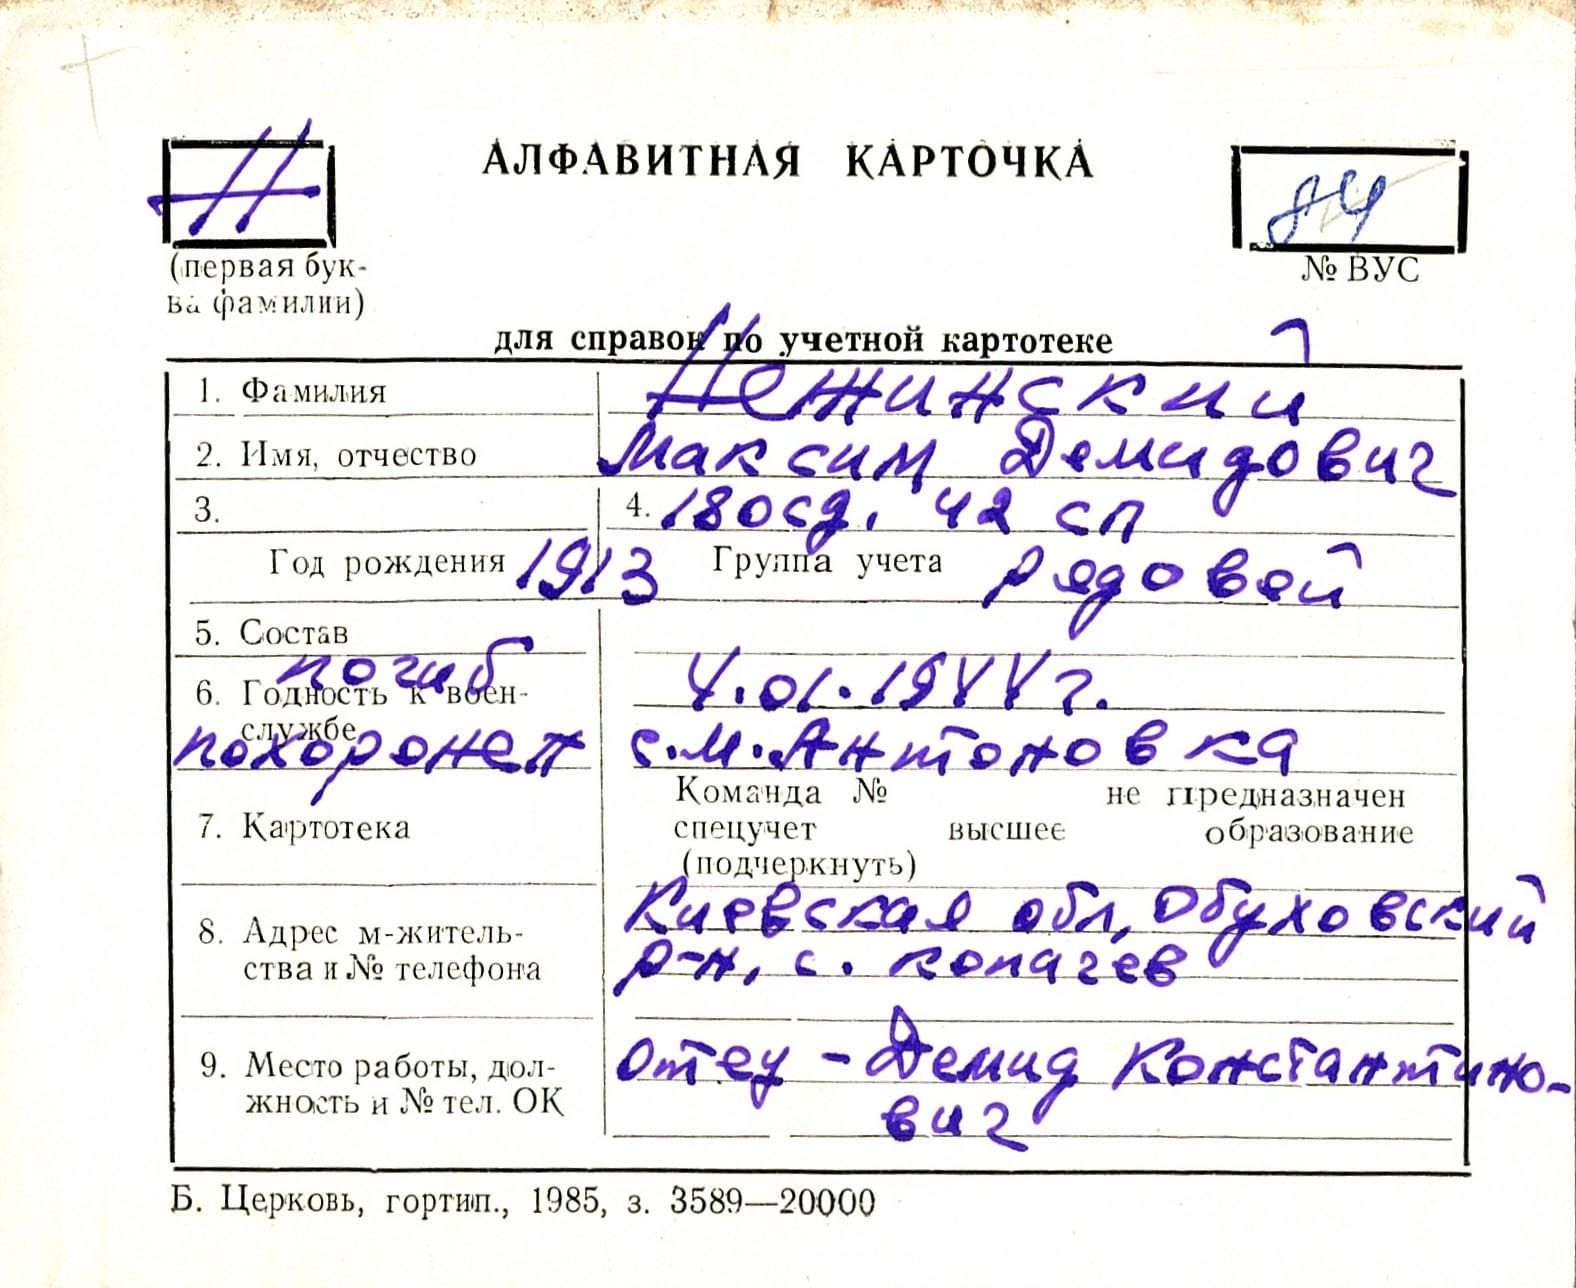 Н
АЛФАВИТНАЯ КАРТОЧКА
84
(первая бук-
ва фамилии)
№ ВУС
для справок по учетной картотеке
1. Фамилия Нежинский
2. Имя, отчество Максим Демидович
3. 4. 180 сд, 42 сп
Год рождения 1913 Группа учета рядовой
5. Состав
погиб 4.01.1944 г.
6. Годность к воен-
службе
похоронен с.м. Антоновка
Команда № не предназначен
7. Картотека спецучет высшее образование
(подчеркнуть)
Киевская обл, Обуховский
8. Адрес м-житель-
ства и № телефона р-н, с. Копачев
9. Место работы, дол- отец - Демид Константино-
жность и № тел. ОК вич
Б. Церковь, гортип., 1985, з. 3589—20000